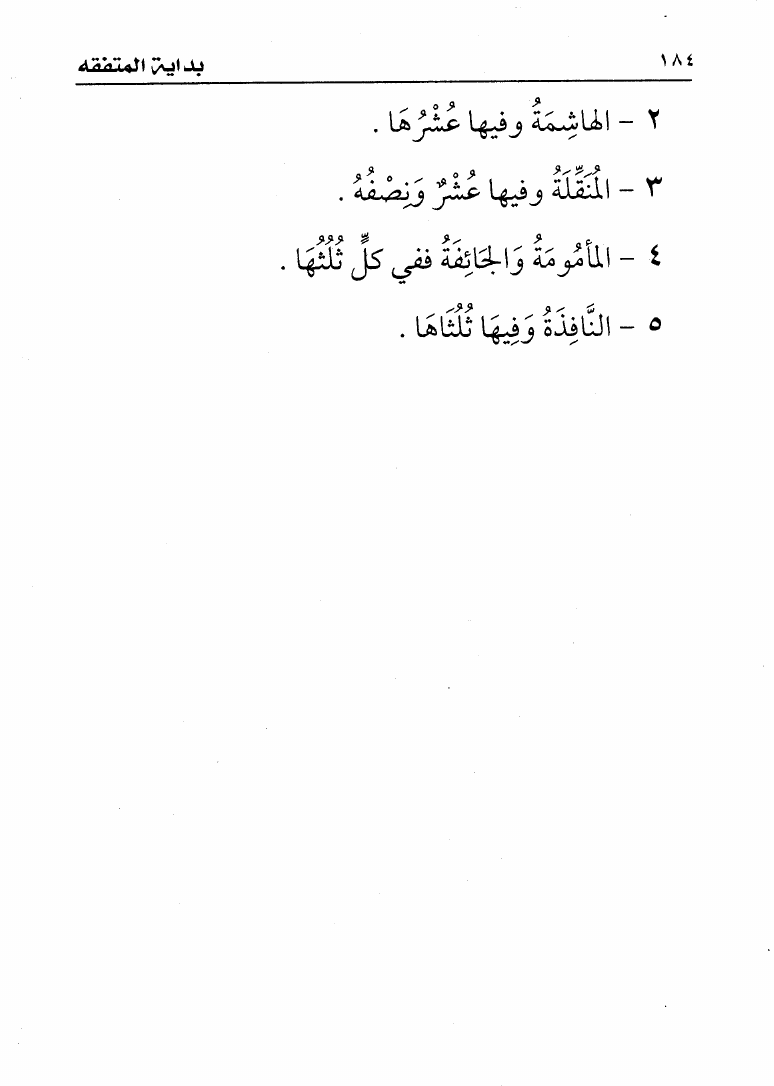 ١٨٤ بداية المتفقه
٢ - الهاشِمَةُ وفيها عُشْرُهَا .
٣ - المُنَقِّلَةُ وفيها عُشْرٌ وَنِصْفُهُ .
٤ - المأمُومَةُ وَالجَائِفَةُ ففي كلٍّ ثُلُثُهَا .
٥ - النَّافِذَةُ وَفِيهَا ثُلُثَاهَا .